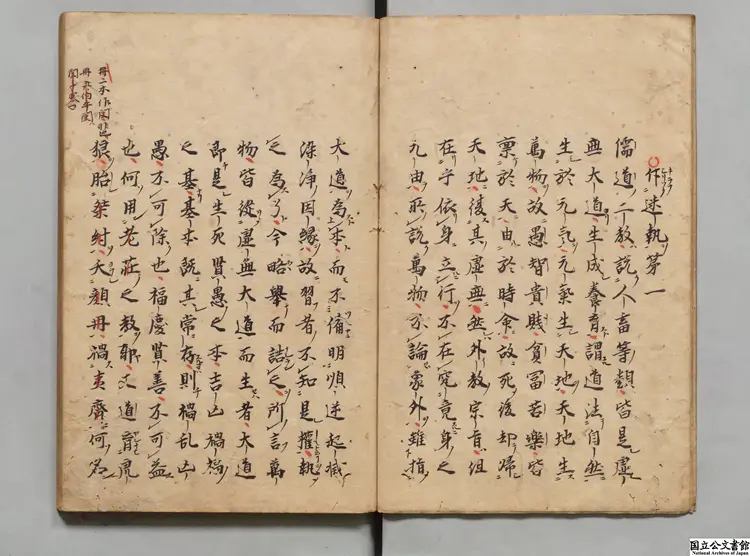 斥迷執第一
儒道二教說人畜等類皆是虛
無大道生成養育謂道法自然
生於元氣元氣生天地天地生
萬物故愚智貴賤貧冨苦樂皆
稟於天由於時命故死後却歸
天地復其虛無然外教宗旨但
在乎依身立行不在究竟身之
元由所說萬物不論象外雖指
大道為本而不備明順逆起滅
染淨因緣故習者不知是權執
之為了今略舉而詰之所言萬
物皆從虛無大道而生者大道
即是生死賢愚之本吉凶禍福
之基基本既其常存則禍亂凶
愚不可除也福慶賢善不可益
也何用老莊之教耶又道育虎
狼胎桀紂夭顏冉禍夷齊何名
国立公文書館
National Archives of Japan